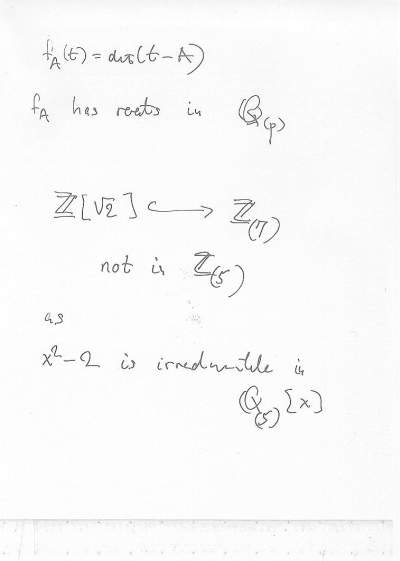 f_A(t) = det(t - A)
f_A has roots in ℚ_(p)
ℤ[√2] ↪ ℤ_(7)
not in ℤ_(5)
as
x² - 2 is irreducible in
ℚ_(5)[x]